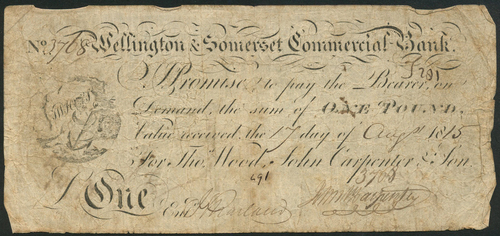 No. 3768 Wellington & Somerset Commercial Bank.
I Promise to pay the Bearer, on
Demand, the sum of ONE POUND
Value received, the 17 day of Augst 1815
For Thos. Wood, John Carpenter & Son.
3768
£ One
291
Entd.
John Carpenter